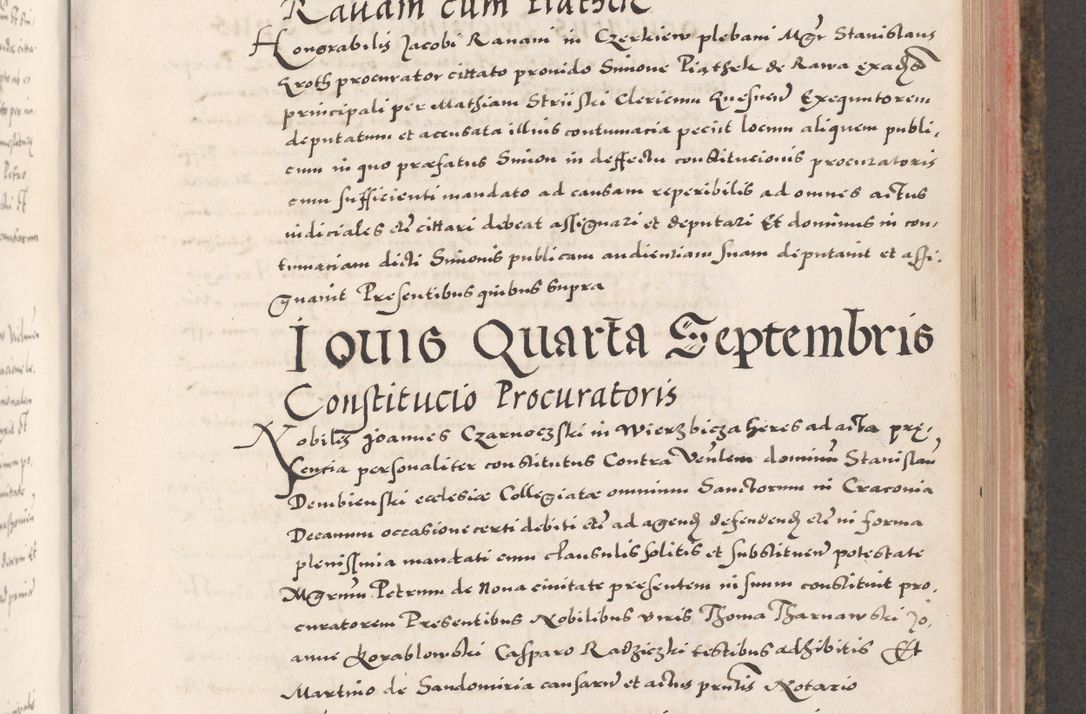 Ravam cum Piathek
Honorabilis Jacobi Ravam in Czerkiew plebani Mgr Stanislaus
Kroth procurator cittato provido Simone Piąthek de Rawa ex adᷤo
principali per Mathiam Striiski Clericum Gnesnen Exequutorem
deputatum et accusata illius contumacia peciit locum aliquem publi,
cum in quo præfatus Simon in deffectu constitucionis procuratoris
cum sufficienti mandato ad causam reperibilis ad omnes actus
iudiciales etc cittari debeat assignari et deputari Et dominus in con,
tumaciam dicti Simonis publicam audienciam suam deputavit et assi,
gnavit Presentibus quibus supra
Iovis Quarta Septembris
Constitucio Procuratoris
Nobilis Joannes Czarnoczski in Wierzbicza heres ad acta prę,
sencia personaliter constitutus Contra Venlem dominum Stanislaum
Dembienski ecclesiæ Collegiatæ omnium Sanctorum in Craconia
Decanum occasione certi debiti etc ad agend defendend etc in forma
plenissima mandati cum clausulis solitis et substituen potestate
Mgrum Petrum de Nova civitate presentem in suum constituit pro,
curatorem Presentibus Nobilibus viris Thoma Tharnawski Jo,
anne Korablowski Casparo Radziczki testibus adhibitis Et
Martino de Sandomiria causarum et actus prntis Notario